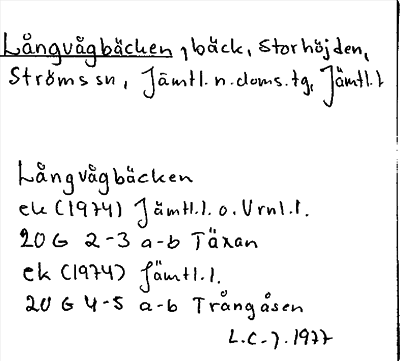 Långvågbäcken, bäck, Storhöjden,
Ströms sn, Jämtl. n. doms. tg, Jämtl. l
Långvågbäcken
ek (1974) Jämtl. l. o. Vrnl. l.
20 G 2-3 a-b Täxan
ek (1974) Jämtl. l.
20 G 4-5 a-b Trångåsen
L.C-J. 1977